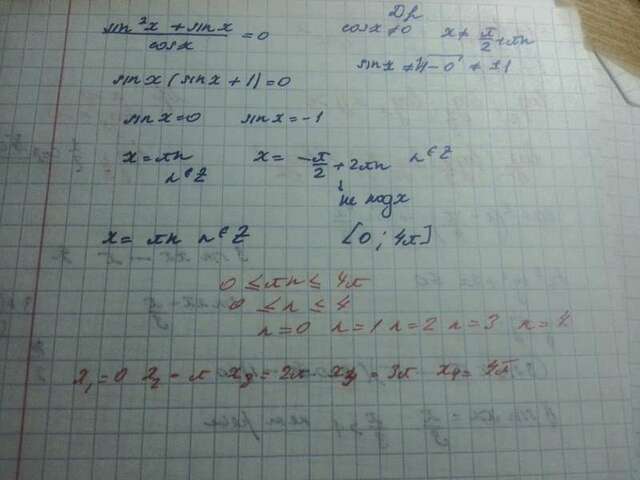 (sin²x + sinx)/cosx = 0
Df
cosx ≠ 0 x ≠ π/2 + πn
sinx ≠ √1-0 ≠ ±1
sinx (sinx + 1) = 0
sinx = 0 sinx = -1
x = πn n∈Z
x = -π/2 + 2πn n∈Z
не подх
x = πn n∈Z [0; 4π]
0 ≤ πn ≤ 4π
0 ≤ n ≤ 4
n=0 n=1 n=2 n=3 n=4
x₁=0 x₂ - π x₃ = 2π x₄ = 3π x₄ = 4π